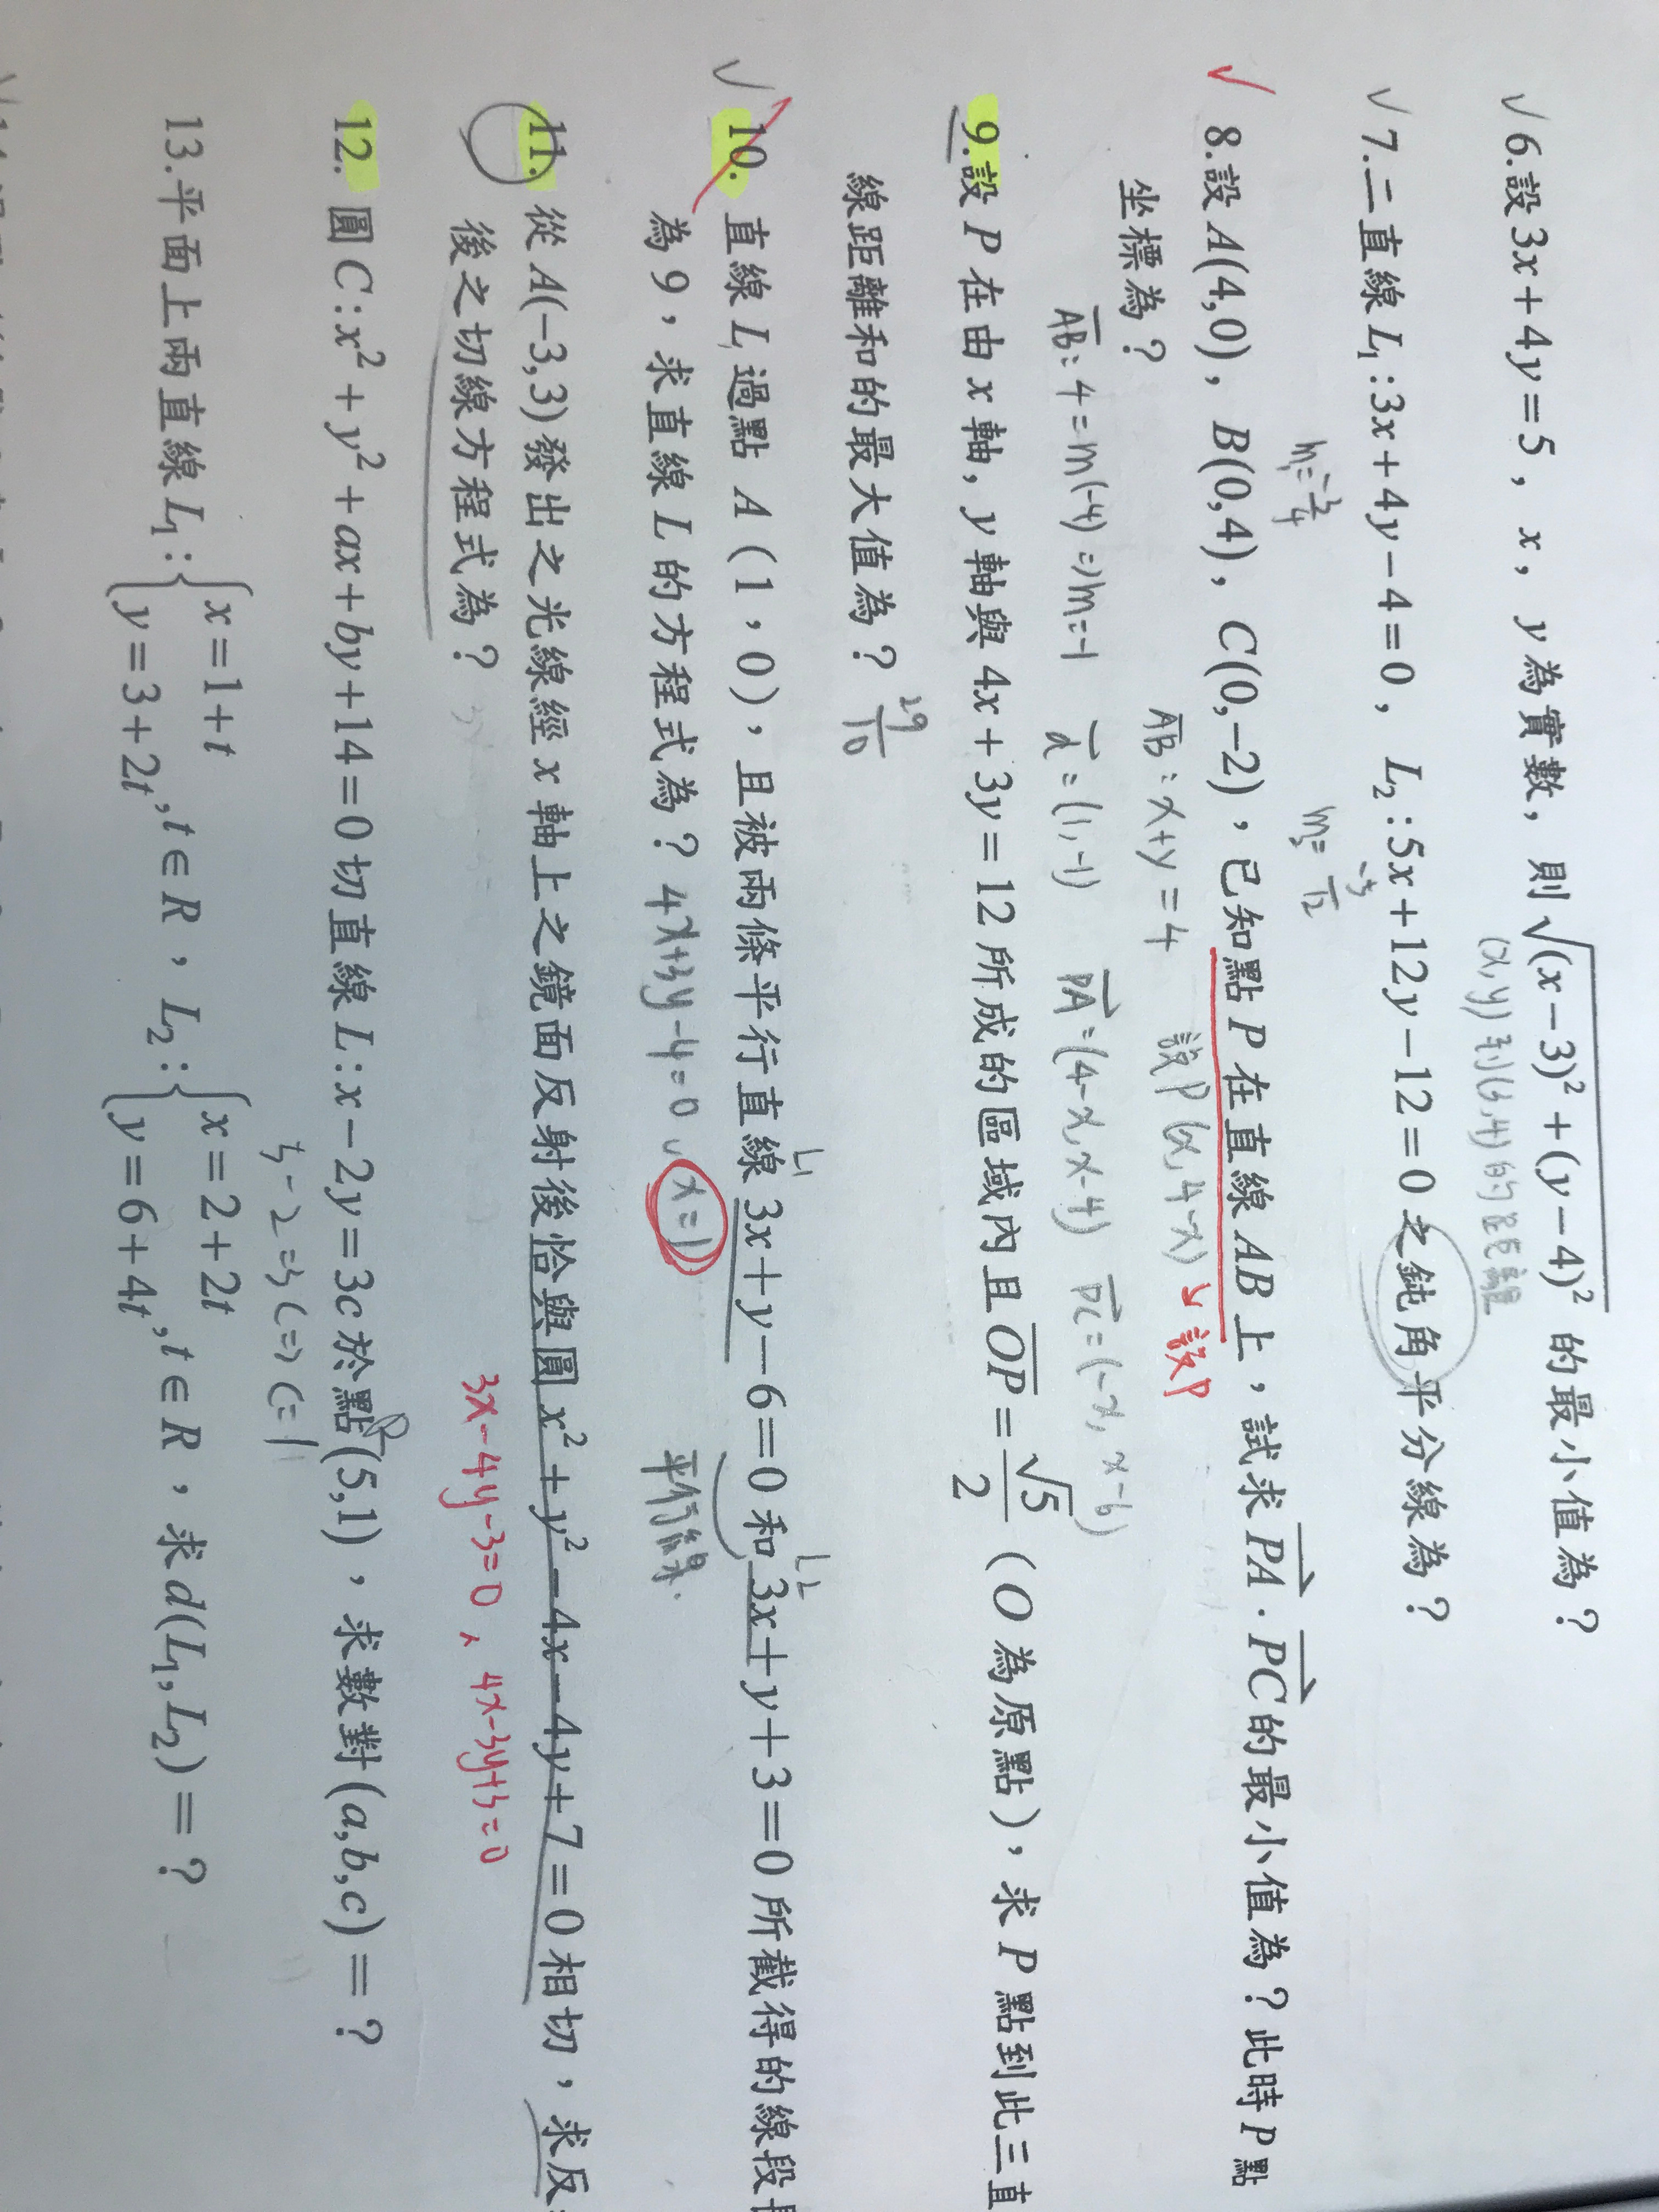 √6.設3x+4y=5，x，y為實數，則√((x−3)²+(y−4)²)的最小值為？
(x,y)到(3,4)的距離
√7.二直線L₁:3x+4y−4=0，L₂:5x+12y−12=0之鈍角平分線為？
√8.設A(4,0)，B(0,4)，C(0,−2)，已知點P在直線AB上，試求PA⃗·PC⃗的最小值為？此時P點
坐標為？
AB：x+y=4 設P(x,4-x)↘設P
AB：4=m(-4)=>m=-1 d⃗=(1,-1) PA⃗=(4-x,x-4) PC⃗=(-x,x-6)
9.設P在由x軸，y軸與4x+3y=12所成的區域內且OP=√5/2（O為原點），求P點到此三直
線距離和的最大值為？29/10
√10. 直線L過點A(1,0)，且被兩條平行直線3x+y−6=0和3x+y+3=0所截得的線段
L₁ L₂
為9，求直線L的方程式為？4x+3y-4=0、x=1
平行線.
11.從A(−3,3)發出之光線經x軸上之鏡面反射後恰與圓x²+y²−4x−4y+7=0相切，求反
後之切線方程式為？
3x-4y-3=0、4x-3y+3=0
12.圓C:x²+y²+ax+by+14=0切直線L:x−2y=3c於點(5,1)，求數對(a,b,c)=？
5-2=3c=>c=1
13.平面上兩直線L₁:{x=1+t, y=3+2t ,t∈R，L₂:{x=2+2t, y=6+4t ,t∈R，求d(L₁,L₂)=？